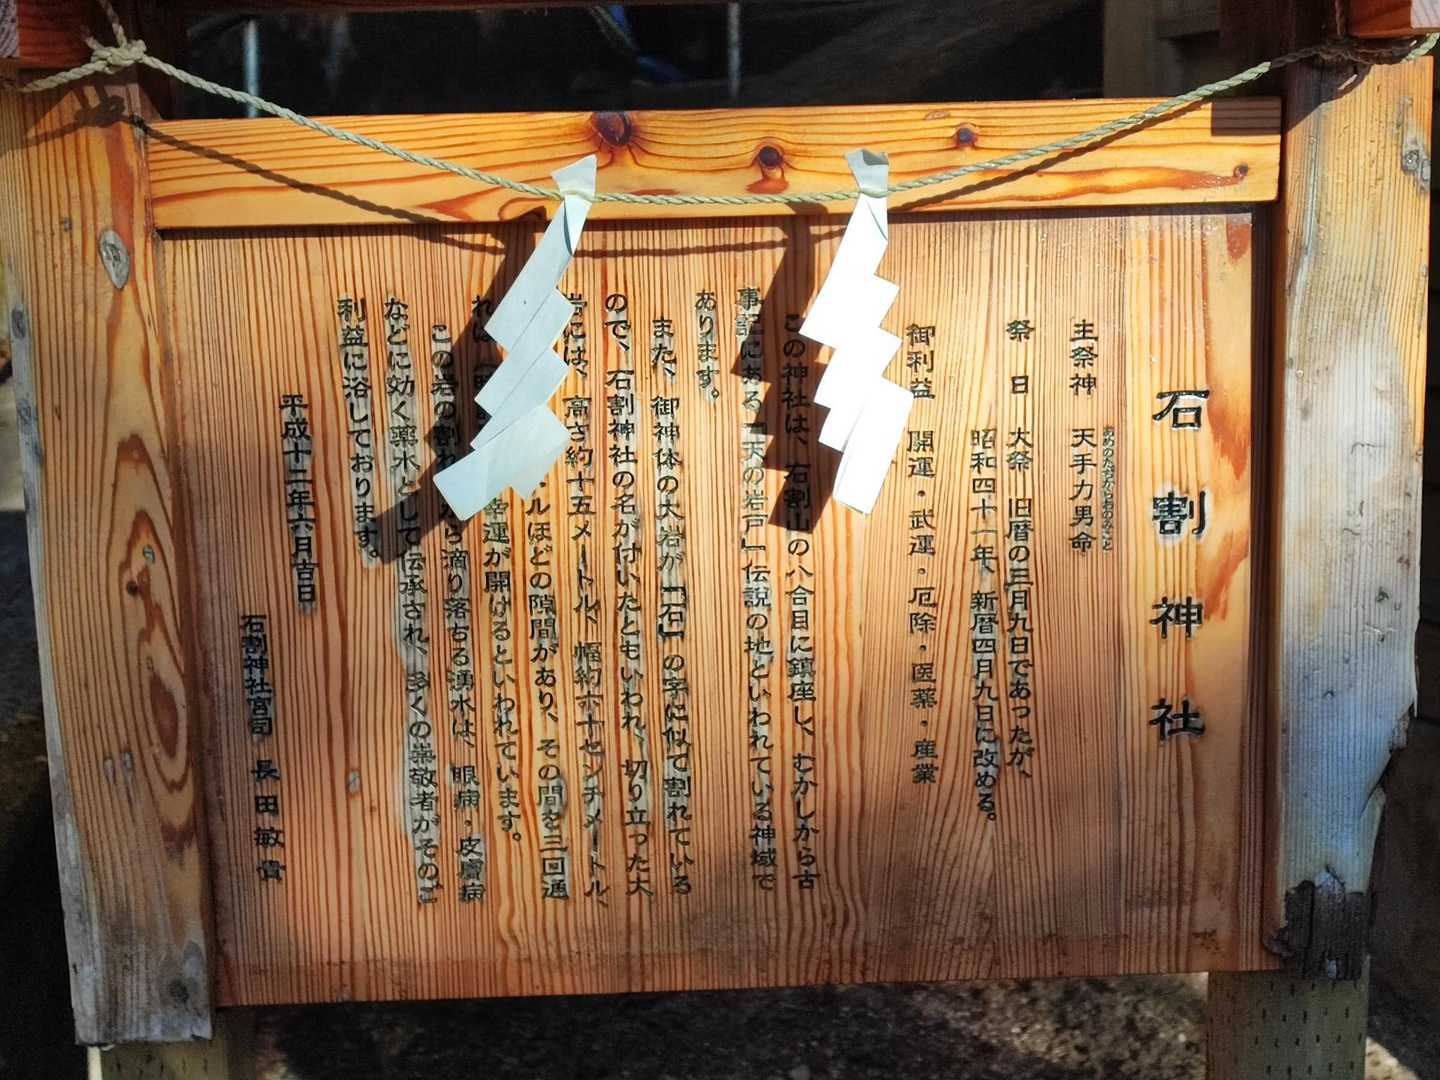 石割神社
主祭神　天手力男命
あめのたぢからおのみこと
祭　日　大祭　旧暦の三月九日であったが、
昭和四十一年、新暦四月九日に改める。
御利益　開運・武運・厄除・医薬・産業
この神社は、石割山の八合目に鎮座し、むかしから古
事記にある「天の岩戸」伝説の地といわれている神域で
あります。
また、御神体の大岩が「石」の字に似て割れている
ので、石割神社の名が付いたともいわれ、切り立った大
岩には、高さ約十五メートル、幅約六十センチメートル、
ルほどの隙間があり、その間を三回通
れば 幸運が開けるといわれています。
この岩の割れ ら滴り落ちる湧水は、眼病・皮膚病
などに効く薬水として伝承され、多くの崇敬者がそのご
利益に浴しております。
平成十二年六月吉日
石割神社宮司　長田敏貴